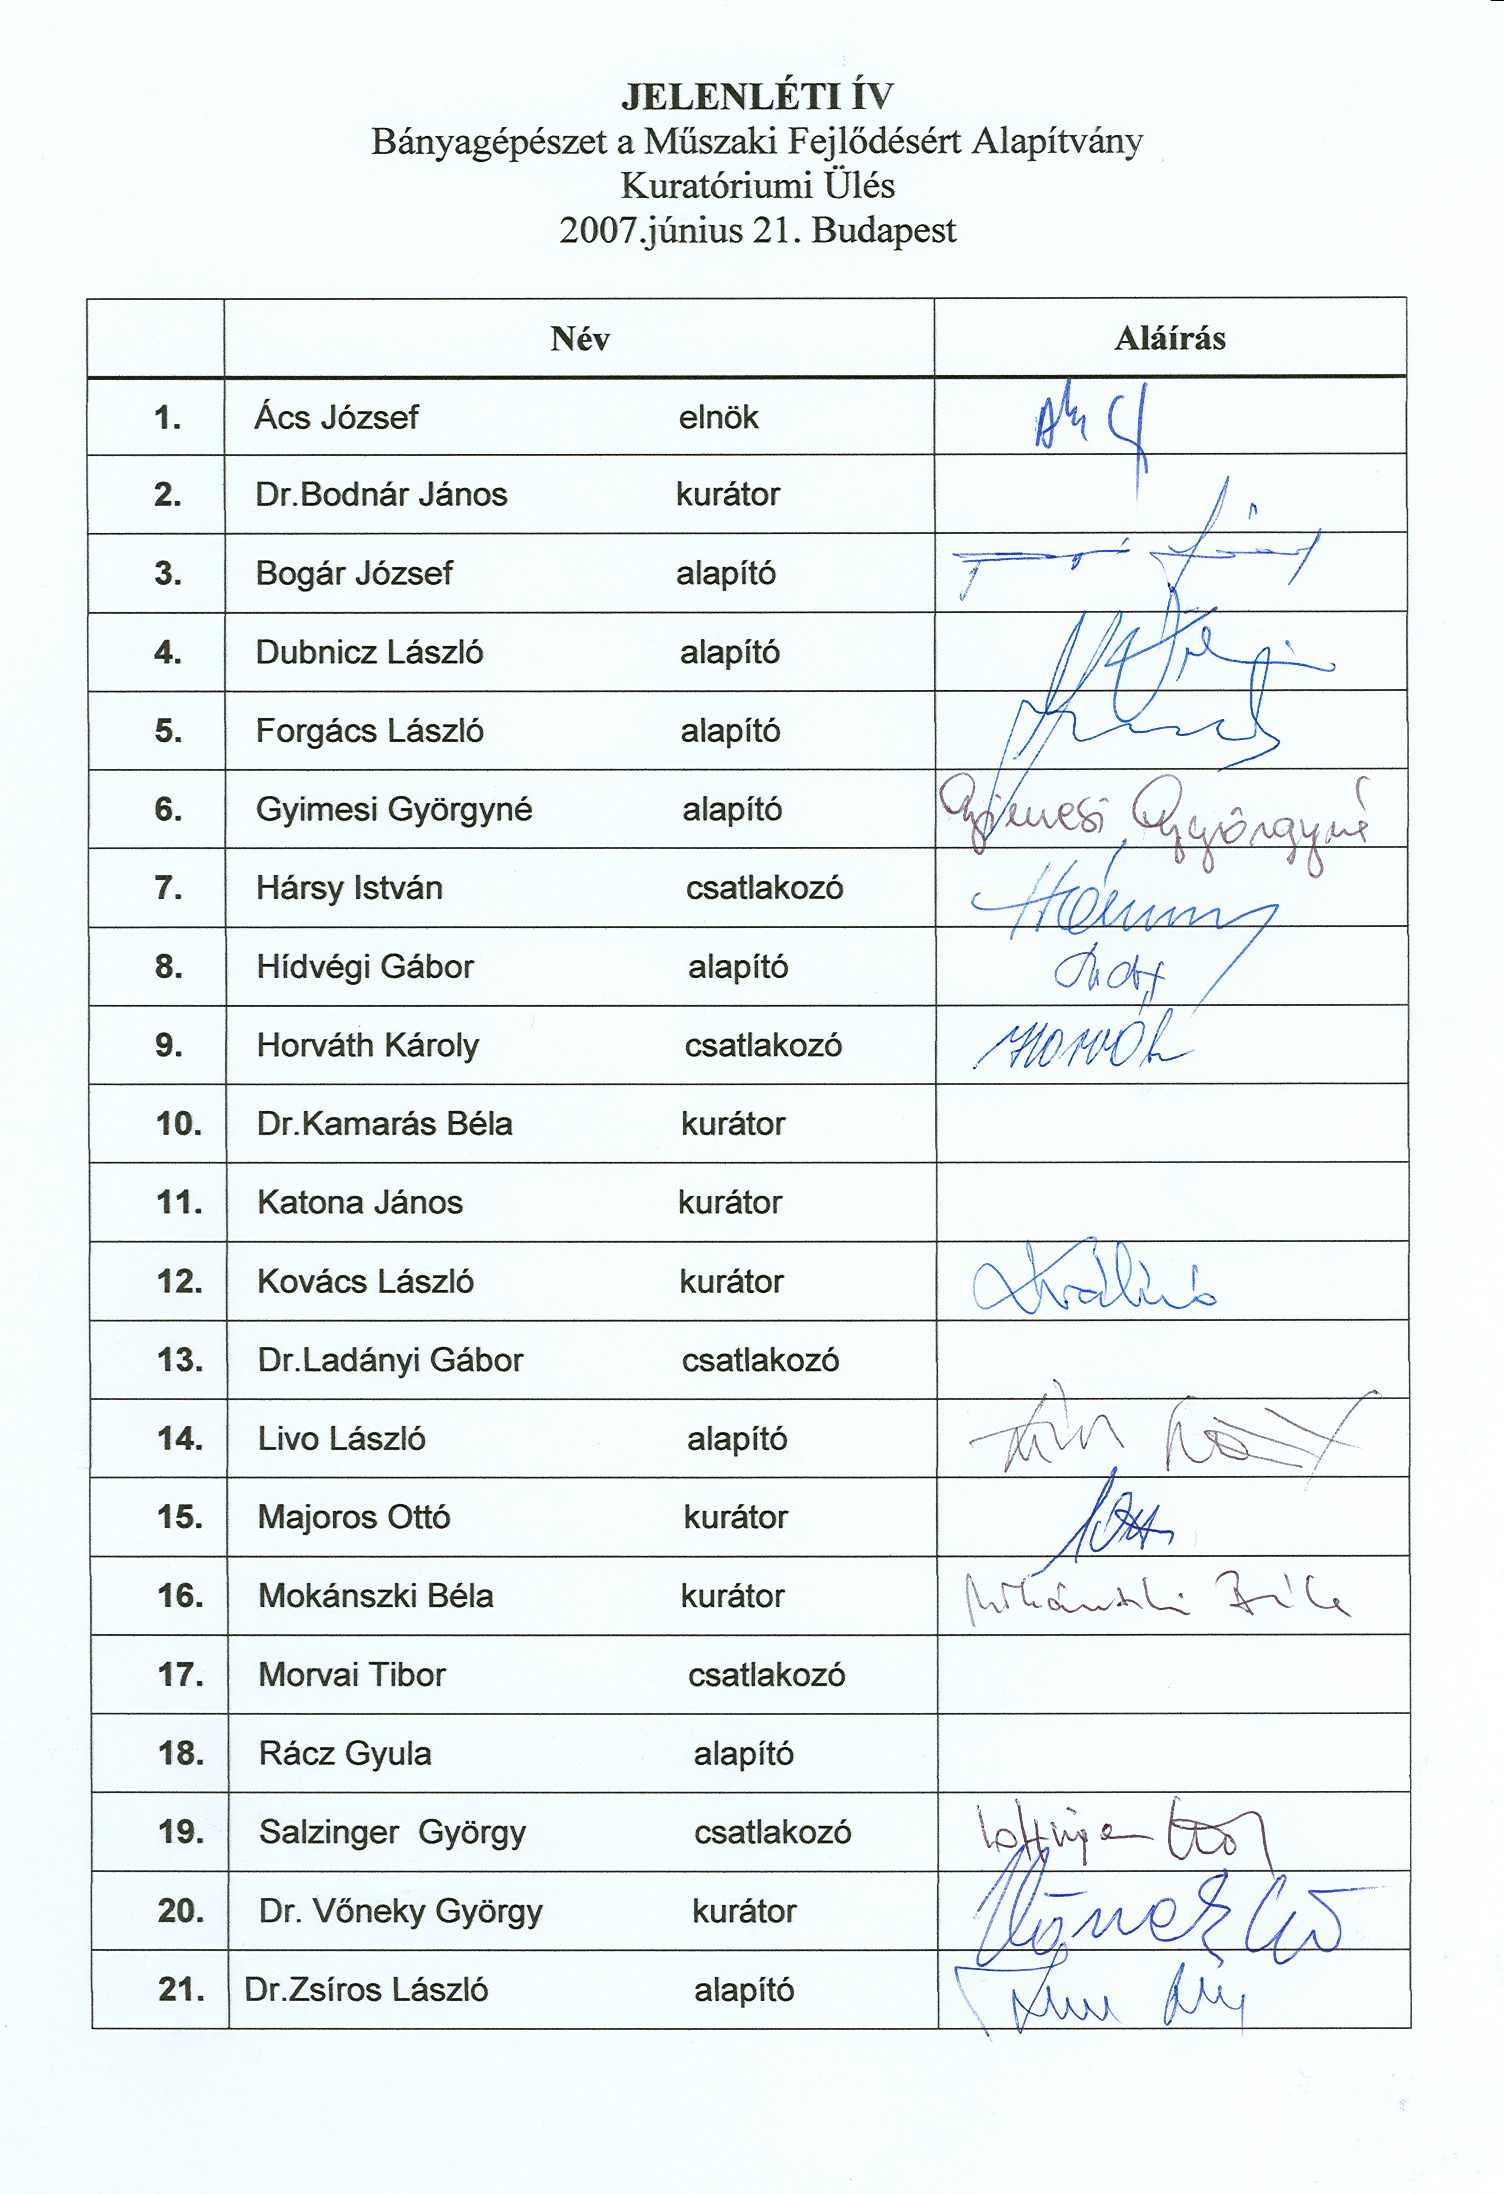 JELENLÉTI ÍV
Bányagépészet a Műszaki Fejlődésért Alapítvány
Kuratóriumi Ülés
2007.június 21. Budapest
Név Aláírás
1. Ács József elnök
2. Dr.Bodnár János kurátor
3. Bogár József alapító
4. Dubnicz László alapító
5. Forgács László alapító
6. Gyimesi Györgyné alapító Gyimesi Györgyné
7. Hársy István csatlakozó
8. Hídvégi Gábor alapító
9. Horváth Károly csatlakozó Horváth
10. Dr.Kamarás Béla kurátor
11. Katona János kurátor
12. Kovács László kurátor
13. Dr.Ladányi Gábor csatlakozó
14. Livo László alapító
15. Majoros Ottó kurátor
16. Mokánszki Béla kurátor Mokánszki Béla
17. Morvai Tibor csatlakozó
18. Rácz Gyula alapító
19. Salzinger György csatlakozó
20. Dr. Vőneky György kurátor
21. Dr.Zsíros László alapító